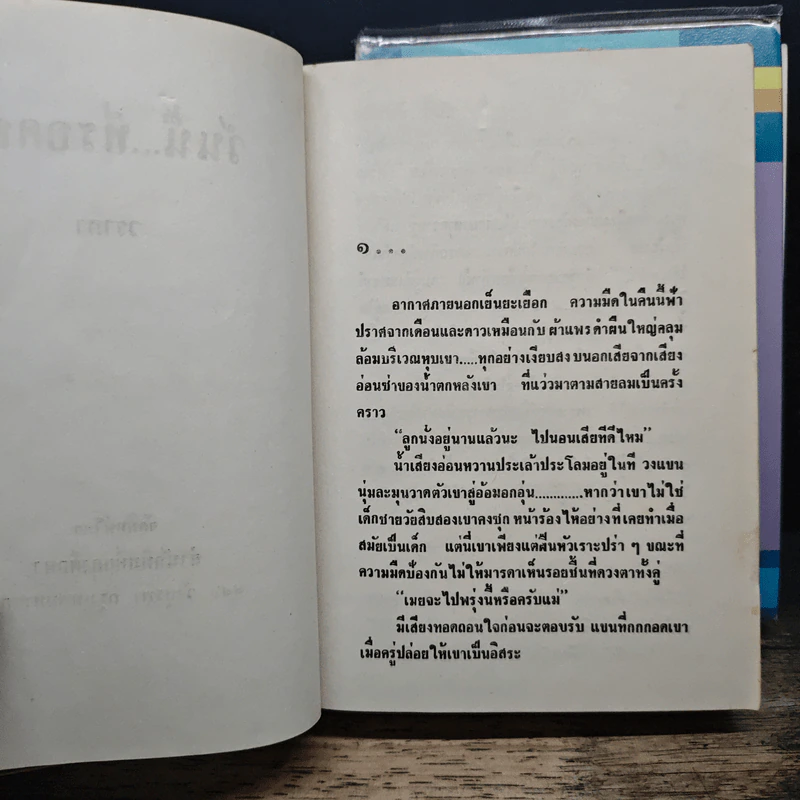 ๑...
อากาศภายนอกเย็นยะเยือก ความมืดในคืนนี้ฟ้า
ปราศจากเดือนและดาวเหมือนกับ ผ้าแพรดำผืนใหญ่คลุม
ล้อมบริเวณหุบเขา.....ทุกอย่างเงียบสงบนอกเสียจากเสียง
อ่อนซ่าของน้ำตกหลังเขา ที่แว่วมาตามสายลมเป็นครั้ง
คราว
“ลูกนั่งอยู่นานแล้วนะ ไปนอนเสียทีดีไหม”
น้ำเสียงอ่อนหวานประเล้าประโลมอยู่ในที วงแขน
นุ่มละมุนวาดตัวเขาสู่อ้อมอกอุ่น.............หากว่าเขาไม่ใช่
เด็กชายวัยสิบสองเขาคงซุก หน้าร้องไห้อย่างที่เคยทำเมื่อ
สมัยเป็นเด็ก แต่นี่เขาเพียงแต่สั่นหัวเราะปร่า ๆ ขณะที่
ความมืดป้องกันไม่ให้มารดาเห็นรอยชื้นที่ดวงตาทั้งคู่
“เมยจะไปพรุ่งนี้หรือครับแม่”
มีเสียงทอดถอนใจก่อนจะตอบรับ แขนที่กกกอดเขา
เมื่อครู่ปล่อยให้เขาเป็นอิสระ